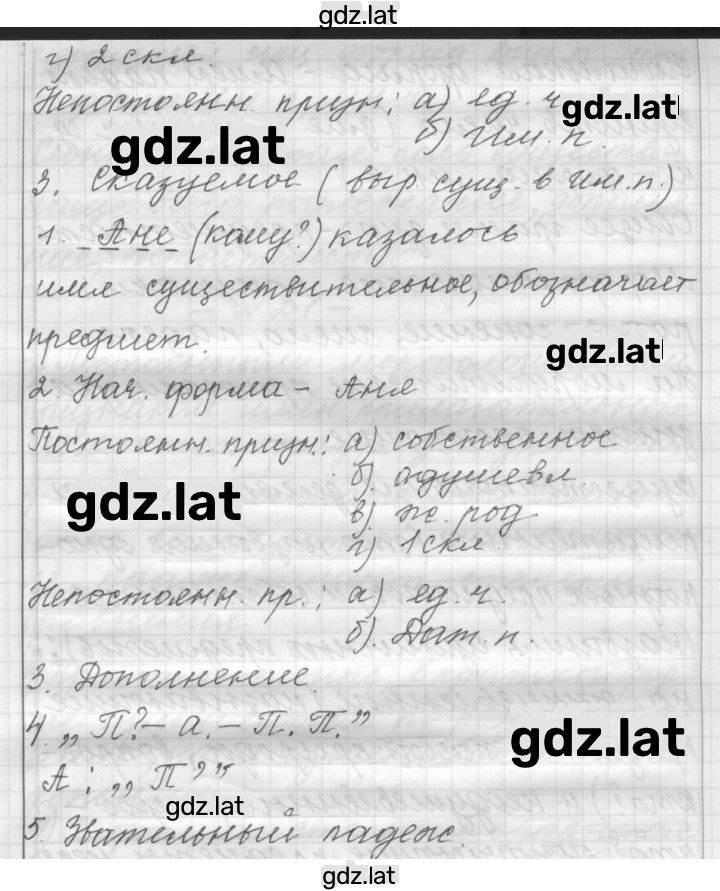 gdz.lat
г) 2 скл.
Непостоянн. призн: а) ед. ч. gdz.lat
gdz.lat б) Им. п.
3. Сказуемое (выр. сущ. в Им.п.)
1. Ане (кому?) казалось
имя существительное, обозначает
предмет. gdz.lat
2 Нач. форма - Аня
Постоянн. призн.: а) собственное
б). одушевл.
gdz.lat в). ж. род
г) 1 скл.
Непостоянн. пр.: а) ед. ч.
б). Дат. п.
3. Дополнение.
4. „П? - а. - П. П.”
gdz.lat
А: „П”
gdz.lat
5. Звательный падеж.
gdz.lat